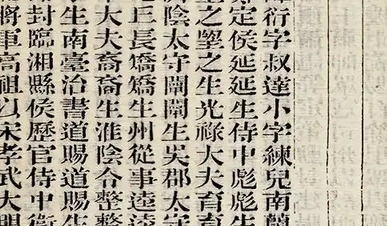 衍字叔達小字練兒南蘭
定侯延延生侍中彪彪生
之望之生光祿大夫育育
陰太守闡闡生吳郡太守
丘長矯矯生州從事逵逵
中大夫裔裔生淮陰令整整
生南臺治書道賜道賜生
封臨湘縣侯歷官侍中衛
將軍高祖以宋孝武大明